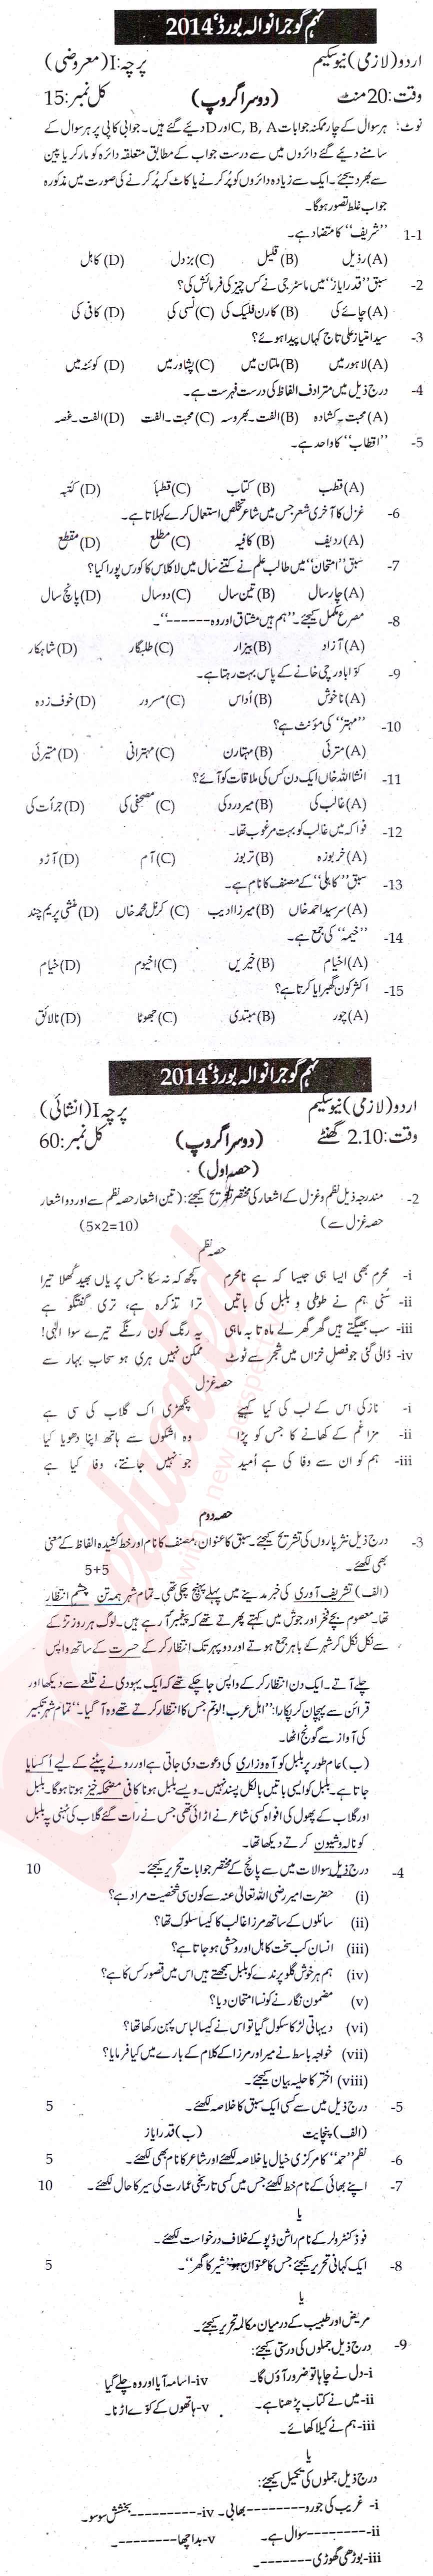 نہم گوجرانوالہ بورڈ، 2014
اردو (لازمی) نیو سکیم
پرچہ: I (معروضی)
وقت: 20 منٹ
(دوسرا گروپ)
کل نمبر: 15
نوٹ: ہر سوال کے چار ممکنہ جوابات C, B, A اور D دیئے گئے ہیں۔ جوابی کاپی پر ہر سوال کے
سامنے دیئے گئے دائروں میں سے درست جواب کے مطابق متعلقہ دائرہ کو مارکر یا پین
سے بھر دیجئے۔ ایک سے زیادہ دائروں کو پُر کرنے یا کاٹ کر پُر کرنے کی صورت میں مذکورہ
جواب غلط تصور ہوگا۔
1-1 "شریف" کا متضاد ہے۔
(A) رذیل (B) قلیل (C) بزدل (D) کاہل
2- سبق "قدرایاز" میں ماسٹر جی نے کس چیز کی فرمائش کی؟
(A) چائے کی (B) کارن فلیک کی (C) لسی کی (D) کافی کی
3- سید امتیاز علی تاج کہاں پیدا ہوئے؟
(A) لاہور میں (B) ملتان میں (C) پشاور میں (D) کوئٹہ میں
4- درج ذیل میں مترادف الفاظ کی درست فہرست ہے۔
(A) محبت۔کشادہ (B) الفت۔بھروسہ (C) محبت۔الفت (D) الفت۔غصہ
5- "اقطاب" کا واحد ہے۔
(A) قطب (B) کتاب (C) قطباً (D) کتبہ
6- غزل کا آخری شعر جس میں شاعر تخلص استعمال کرے کہلاتا ہے۔
(A) ردیف (B) کافیہ (C) مطلع (D) مقطع
7- سبق "امتحان" میں طالب علم نے کتنے سال میں لا کلاس کا کورس پورا کیا؟
(A) چار سال (B) تین سال (C) دو سال (D) پانچ سال
8- مصرع مکمل کیجئے۔ "ہم ہیں مشتاق اور وہ ------"۔
(A) آزاد (B) بیزار (C) طلبگار (D) شاہکار
9- کوّا باورچی خانے کے پاس بہت رہتا ہے۔
(A) ناخوش (B) اُداس (C) مسرور (D) خوف زدہ
10- "مہتر" کی مؤنث ہے؟
(A) مترئی (B) مہتارن (C) مہترانی (D) متیرئی
11- انشا اللہ خاں ایک دن کس کی ملاقات کو آئے؟
(A) غالب کی (B) میر درد کی (C) مصحفی کی (D) جرأت کی
12- فواکہ میں غالب کو بہت مرغوب تھا۔
(A) خربوزہ (B) تربوز (C) آم (D) آڑو
13- سبق "کاہلی" کے مصنف کا نام ہے۔
(A) سرسید احمد خاں (B) میرزا ادیب (C) کرنل محمد خاں (D) منشی پریم چند
14- "خیمہ" کی جمع ہے۔
(A) اخیام (B) خیریں (C) اخیوم (D) خیام
15- اکثر کون گھبرایا کرتا ہے؟
(A) چور (B) مبتدی (C) جھوٹا (D) نالائق
نہم گوجرانوالہ بورڈ، 2014
اردو (لازمی) نیو سکیم
پرچہ I (انشائی)
وقت: 2.10 گھنٹے
(دوسرا گروپ)
کل نمبر: 60
(حصہ اول)
2- مندرجہ ذیل نظم و غزل کے اشعار کی مختصر تشریح کیجئے: (تین اشعار حصہ نظم سے اور دو اشعار
حصہ غزل سے) (5×2=10)
حصہ نظم
i- محرم بھی ایسا ہی جیسا کہ ہے نامحرم کچھ کہہ نہ سکا جس پر یاں بھید کھلا تیرا
ii- سُنی ہم نے طوطی و بلبل کی باتیں ترا تذکرہ ہے، تری گفتگو ہے
iii- سب بھیگتے ہیں گھر گھر لے ماہ تا بہ ماہی یہ رنگ کون رنگے تیرے سوا الٰہی!
iv- ڈالی گئی جو فصل خزاں میں شجر سے ٹوٹ ممکن نہیں ہری ہو سحاب بہار سے
حصہ غزل
i- نازکی اس کے لب کی کیا کہیے پنکھڑی اک گلاب کی سی ہے
ii- مزا غم کے کھانے کا جس کو پڑا وہ اشکوں سے ہاتھ اپنا دھویا کیا
iii- ہم کو ان سے وفا کی ہے اُمید جو نہیں جانتے، وفا کیا ہے
حصہ دوم
3- درج ذیل نثر پاروں کی تشریح کیجئے۔ سبق کا عنوان، مصنف کا نام اور خط کشیدہ الفاظ کے معنی
بھی لکھئے۔ 5+5
(الف) تشریف آوری کی خبر مدینے میں پہلے پہنچ چکی تھی۔ تمام شہر ہمہ تن چشم انتظار
تھا۔ معصوم بچے فخر اور جوش میں کہتے پھرتے تھے کہ پیغمبر آ رہے ہیں۔ لوگ ہر روز تڑکے
سے نکل نکل کر شہر کے باہر جمع ہوتے اور دوپہر تک انتظار کر کے حسرت کے ساتھ واپس
چلے آتے۔ ایک دن انتظار کر کے واپس جا چکے تھے کہ ایک یہودی نے قلعے سے دیکھا اور
قرائن سے پہچان کر پکارا: "اہل عرب! لو تم جس کا انتظار کرتے تھے وہ آ گیا۔" تمام شہر تکبیر
کی آواز سے گونج اٹھا۔
(ب) عام طور پر بلبل کو آہ و زاری کی دعوت دی جاتی ہے اور رونے پیٹنے کے لیے اُکسایا
جاتا ہے۔ بلبل کو ایسی باتیں بالکل پسند نہیں۔ ویسے بلبل ہونا کافی مضحکہ خیز ہوتا ہوگا۔ بلبل
اور گلاب کے پھول کی افواہ کسی شاعر نے اڑائی تھی جس نے رات گئے گلاب کی ٹہنی پہ بلبل
کو نالہ و شیون کرتے دیکھا تھا۔
4- درج ذیل سوالات میں سے پانچ کے مختصر جوابات تحریر کیجئے۔ 10
(i) حضرت امیر رضی اللہ تعالیٰ عنہ سے کون سی شخصیت مراد ہے؟
(ii) سائلوں کے ساتھ مرزا غالب کا کیسا سلوک تھا؟
(iii) انسان کب سخت کاہل اور وحشی ہو جاتا ہے؟
(iv) ہم ہر خوش گلو پرندے کو بلبل سمجھتے ہیں اس میں قصور کس کا ہے؟
(v) مضمون نگار نے کونسا امتحان دیا؟
(vi) دیہاتی لڑکا سکول گیا تو اس نے کیسا لباس پہن رکھا تھا؟
(vii) خواجہ باسط نے میر اور مرزا کے کلام کے بارے میں کیا فرمایا؟
(viii) اختر کا حلیہ بیان کیجئے۔
5- درج ذیل میں سے کسی ایک سبق کا خلاصہ لکھئے۔ 5
(الف) پنچایت (ب) قدرایاز
6- نظم "حمد" کا مرکزی خیال یا خلاصہ لکھئے اور شاعر کا نام بھی لکھئے۔ 5
7- اپنے بھائی کے نام خط لکھئے جس میں کسی تاریخی عمارت کی سیر کا حال لکھئے۔ 10
یا
فوڈ کنٹرولر کے نام راشن ڈپو کے خلاف درخواست لکھئے۔
8- ایک کہانی تحریر کیجئے جس کا عنوان ہو "شیر کا گھر"۔ 5
یا
مریض اور طبیب کے درمیان مکالمہ تحریر کیجئے۔
9- درج ذیل جملوں کی درستی کیجئے:
i- دل نے چاہا تو ضرور آؤں گا۔ iv- اسامہ آیا اور وہ چلے گیا
ii- میں نے کتاب پڑھنا ہے۔ v- ہاتھوں کے کوّے اڑنا۔
iii- ہم نے کیلا کھائے۔
یا
درج ذیل جملوں کی تکمیل کیجئے:
i- غریب کی جورو --------- بھابی۔ iv- --------- بخشش سو سو۔
ii- --------- سوال ہے۔ v- بد اچھا --------۔
iii- بوڑھی گھوڑی --------۔